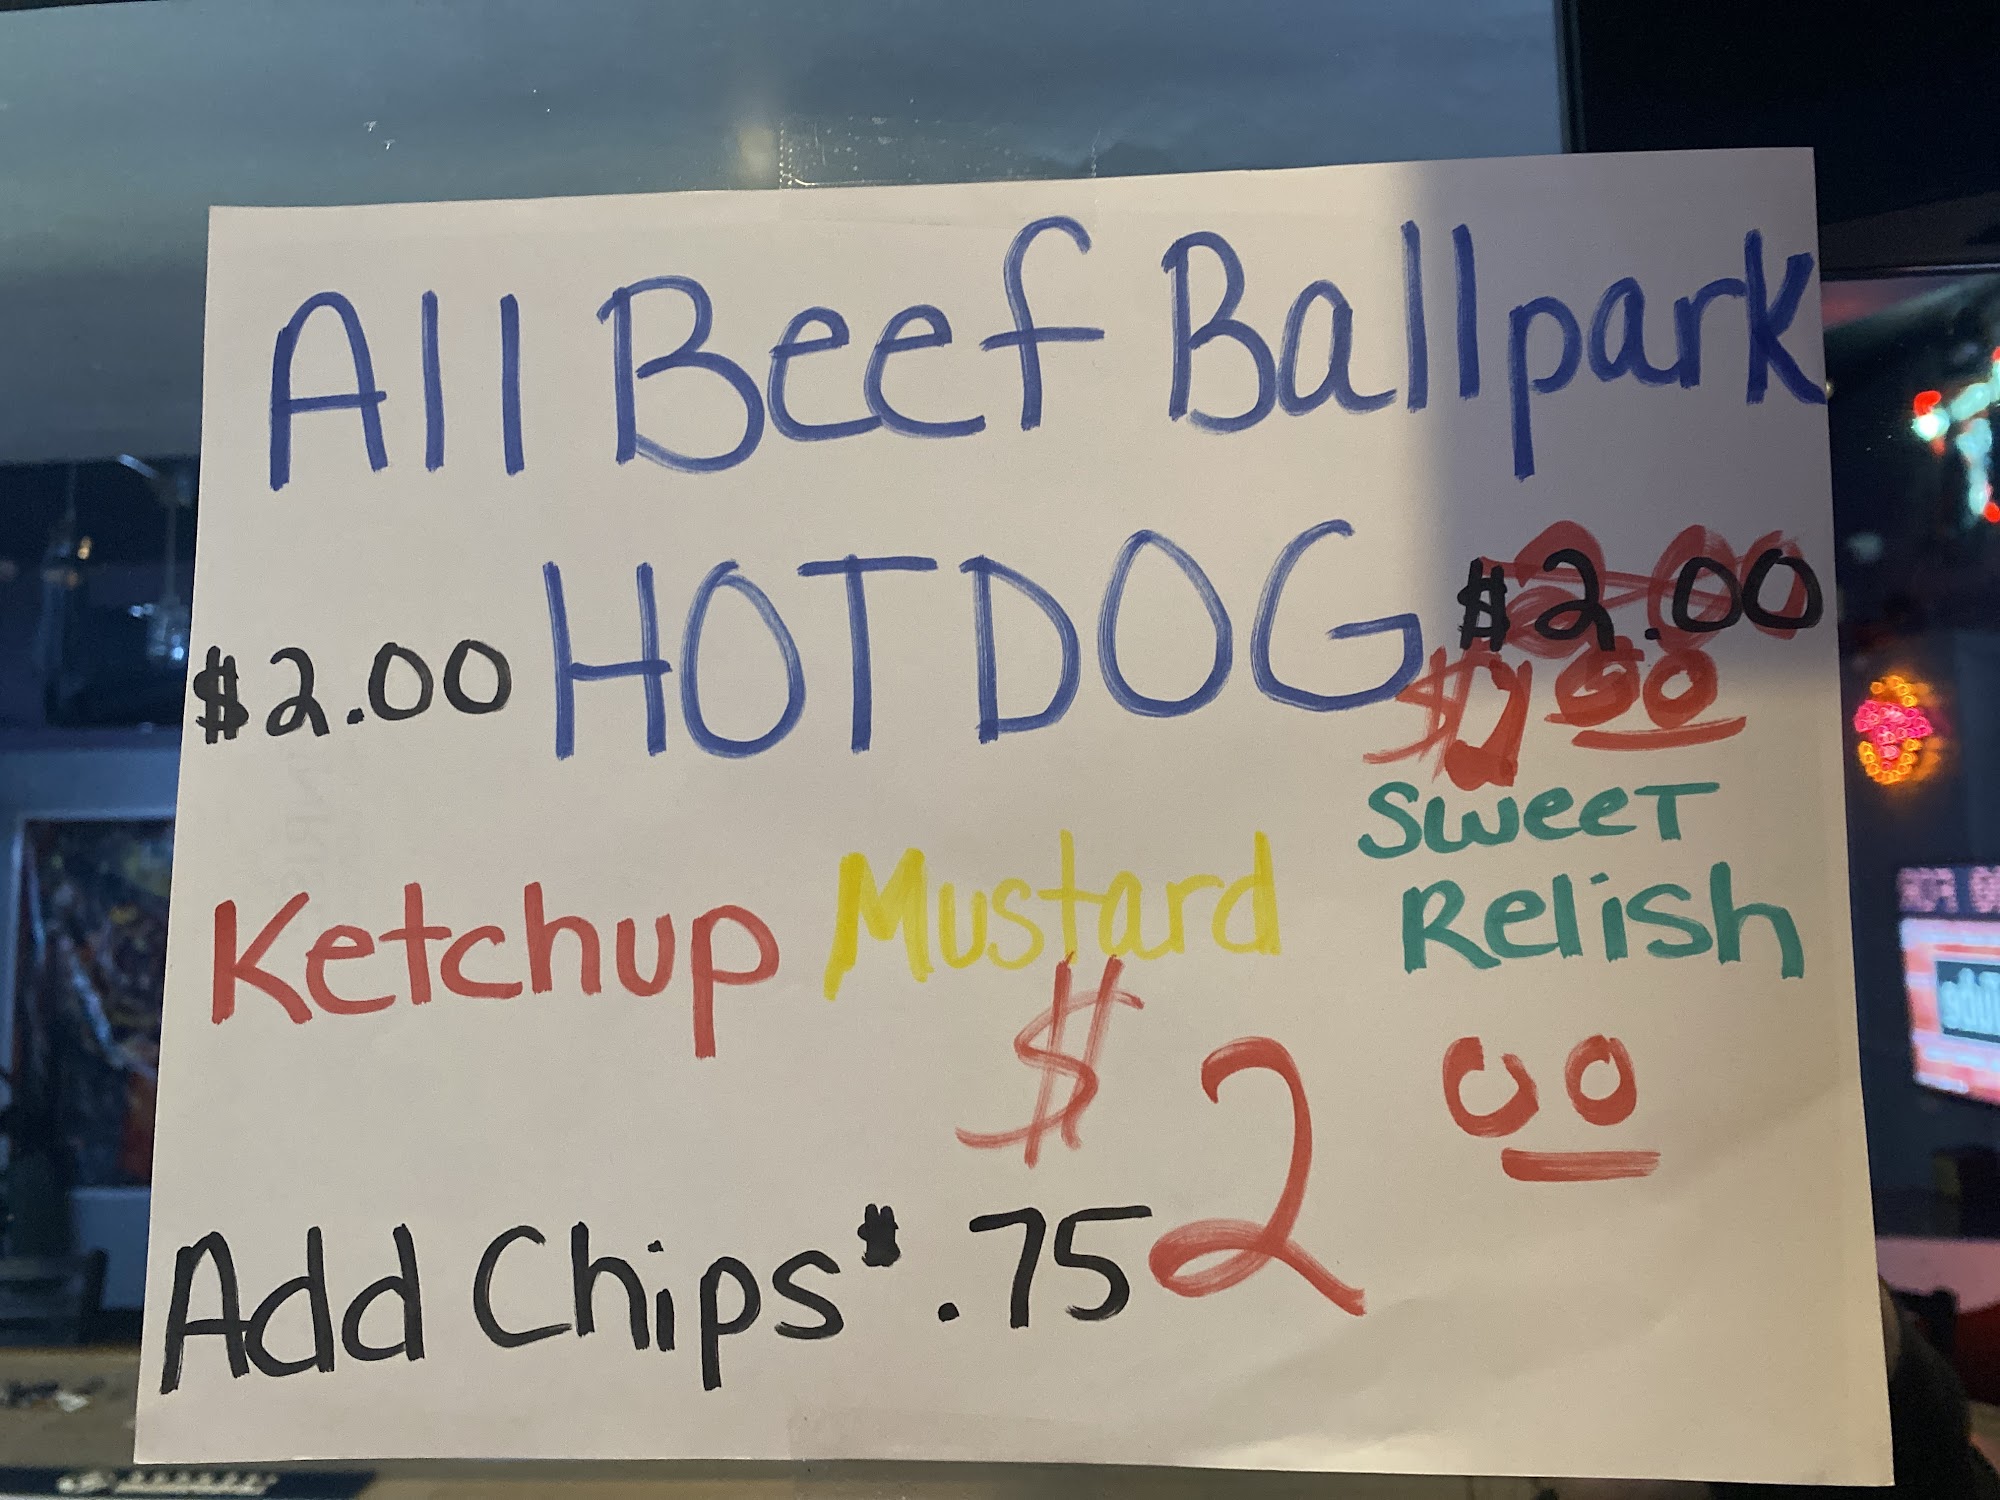 All Beef Ballpark
$2.00 HOT DOG $2.00
Sweet
Ketchup Mustard Relish
$2 00
Add Chips* .75